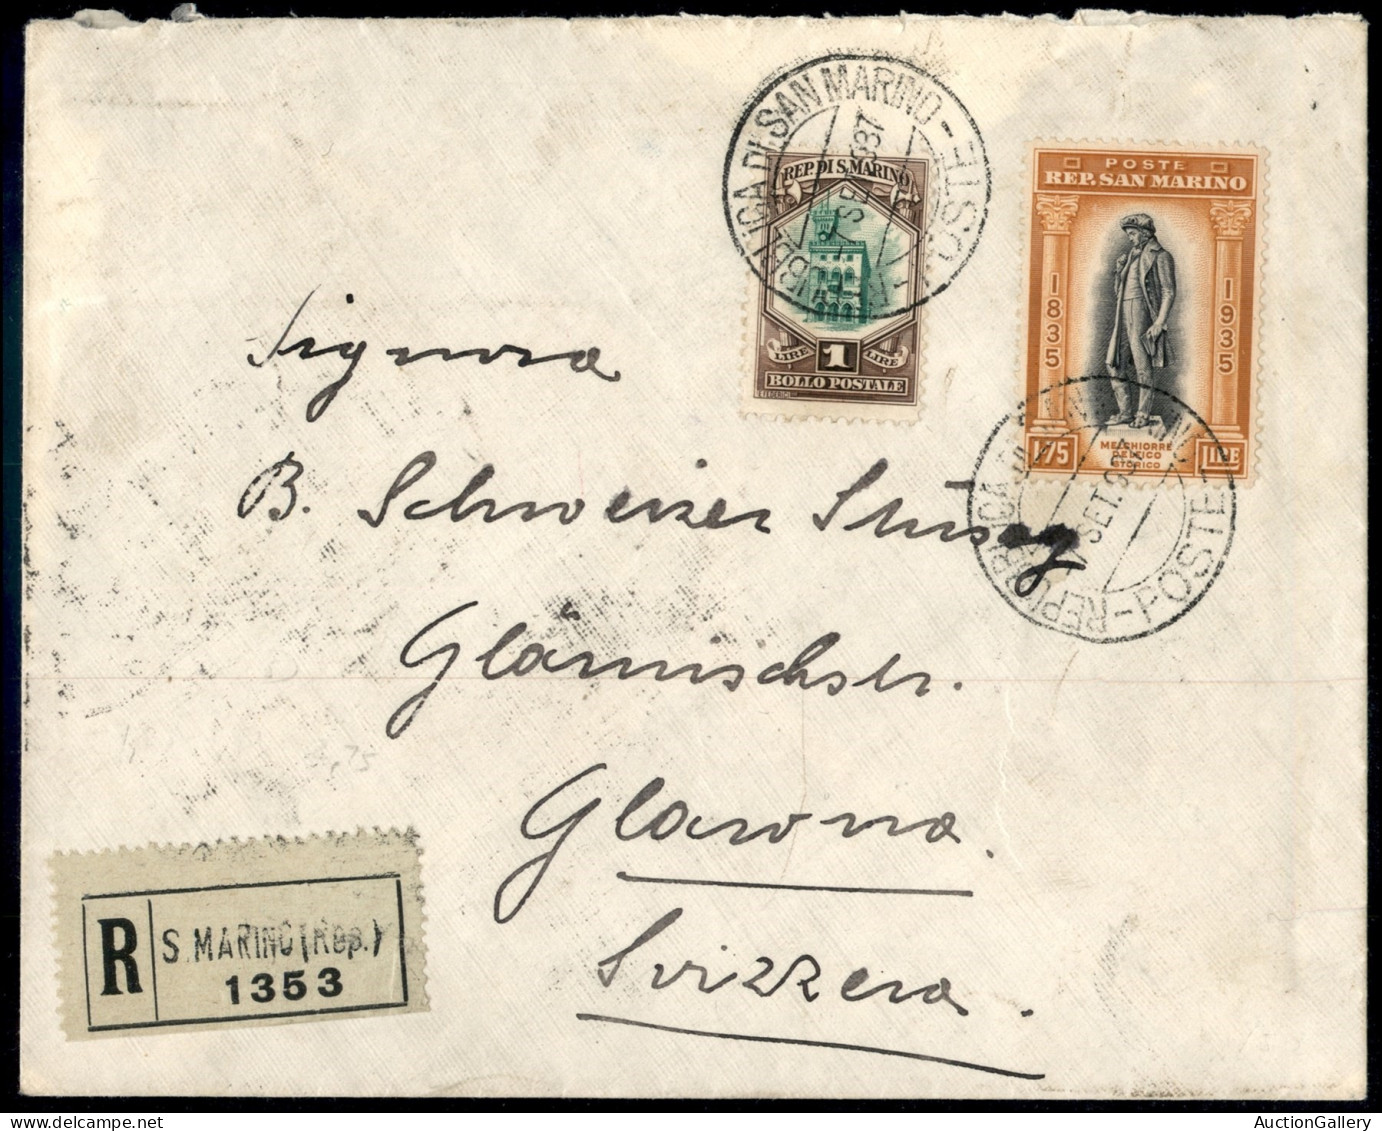 REPUBBLICA DI SAN MARINO - POSTE -
7 SET. 937
REP. DI S. MARINO
LIRE 1 LIRE
BOLLO POSTALE
POSTE
REP. SAN MARINO
1835 1935
MELCHIORRE
DELFICO
STORICO
1.75 LIRE
REPUBBLICA DI SAN MARINO - POSTE -
7 SET. 937
Signora
B. Schweizer Stüssy
Glärnischstr.
Glarona.
Svizzera.
2,75
R S. MARINO (Rep.)
1353
AuctionGallery